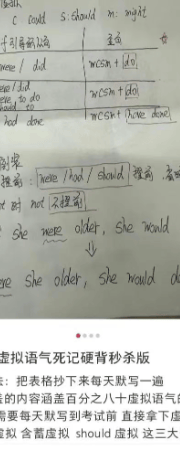 c could s:should m: might
主句
were / did
wcsm + do
were / did
were to do
should to
wcsm + do
had done
wcsm + have done
倒装
were / had / should 提前
时 not 不提前
she were older, she would
she older, she would do
虚拟语气死记硬背秒杀版
法：把表格抄下来每天默写一遍
的内容涵盖百分之八十虚拟语气的
需要每天默写到考试前 直接拿下虚
虚拟 含蓄虚拟 should 虚拟 这三大